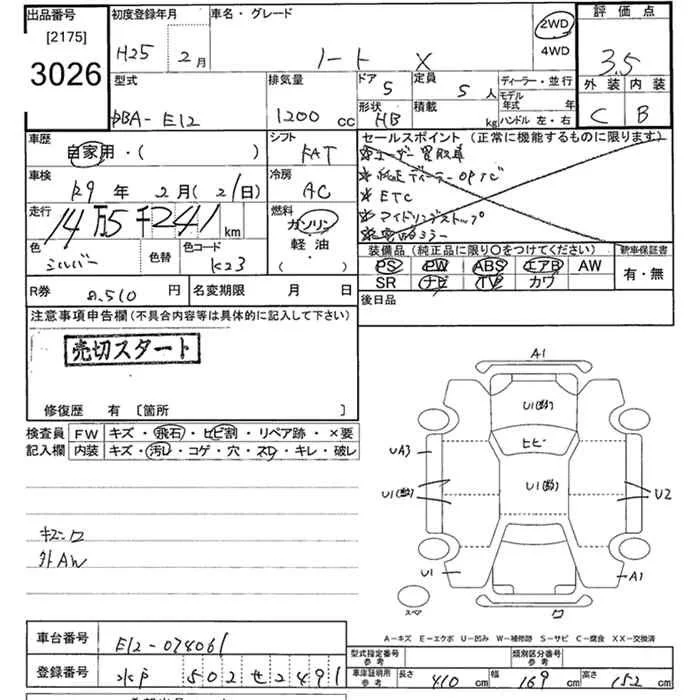 出品番号 初度登録年月 車名・グレード 2WD 評価点
[2175] H25年 2月 ノート X 4WD 3.5
3026 外装 内装
型式 排気量 ドア 5 定員 5人 ディーラー・並行
モデル年式 年 C B
DBA-E12 1200cc 形状 HB 積載 kg ハンドル 左・右
車歴 シフト セールスポイント(正常に機能するものに限ります)
自家用・( ) FAT ※ユーザー買取車
車検 冷房 ※純正ディーラーOPナビ
R9年 2月(21日) AC ※ETC
走行 燃料 ※アイドリングストップ
14万5千241km ガソリン
軽油
・( )
色 シルバー 色替 色コード K23
装備品(純正品に限り○をつけてください) 新車保証書
PS PW ABS エアB AW 有・無
SR ナビ TV カワ
R券 8,510円 名変期限 月 日 後日品
注意事項申告欄(不具合内容等は具体的に記入して下さい)
売切スタート
修復歴 有 〔箇所 〕
検査員 FW キズ・飛石・ヒビ割・リペア跡・×要
記入欄 内装 キズ・汚レ・コゲ・穴・スレ・キレ・破レ
キズ
外AW
A1
U1
ヒビ
UA3
U1
U1
U2
U1
A1
スペア
A-キズ E-エクボ U-凹み W-補修跡 S-サビ C-腐食 XX-交換済
車台番号 E12-074061
登録番号 水戸 502せ2491
型式指定番号 参考 類別区分番号 参考
車庫証明用 参考 長さ 410cm 幅 169cm 高さ 152cm